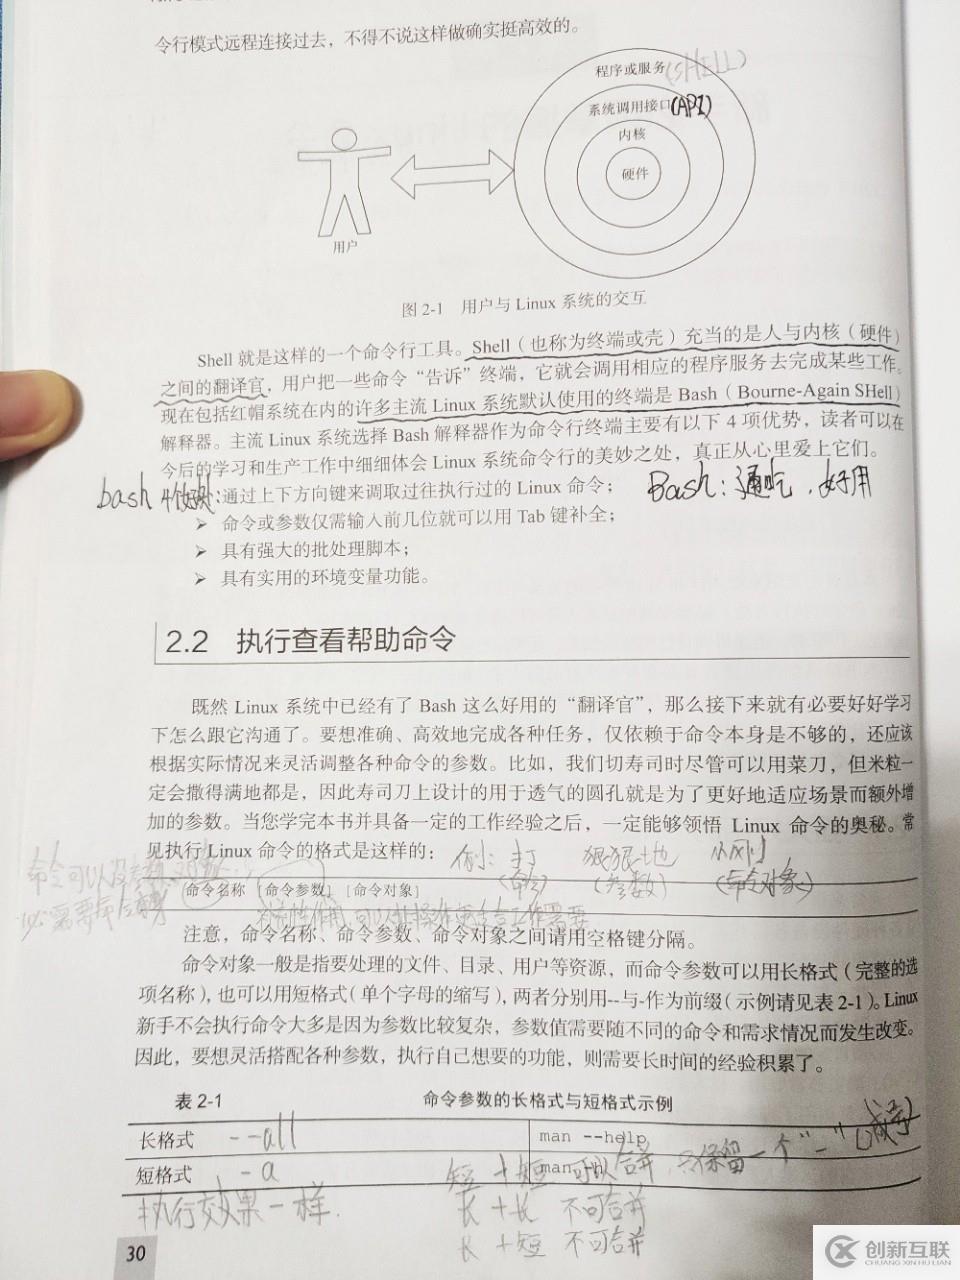 令行模式远程连接过去，不得不说这样做确实挺高效的。
程序或服务(SHELL)
系统调用接口(API)
内核
硬件
用户
图 2-1 用户与 Linux 系统的交互
Shell 就是这样的一个命令行工具。Shell（也称为终端或壳）充当的是人与内核（硬件）
之间的翻译官，用户把一些命令“告诉”终端，它就会调用相应的程序服务去完成某些工作。
现在包括红帽系统在内的许多主流 Linux 系统默认使用的终端是 Bash（Bourne-Again SHell）
解释器。主流 Linux 系统选择 Bash 解释器作为命令行终端主要有以下 4 项优势，读者可以在
今后的学习和生产工作中细细体会 Linux 系统命令行的美妙之处，真正从心里爱上它们。
bash 4个好处：通过上下方向键来调取过往执行过的 Linux 命令； Bash：通吃，好用
➢ 命令或参数仅需输入前几位就可以用 Tab 键补全；
➢ 具有强大的批处理脚本；
➢ 具有实用的环境变量功能。
2.2 执行查看帮助命令
既然 Linux 系统中已经有了 Bash 这么好用的“翻译官”，那么接下来就有必要好好学习
下怎么跟它沟通了。要想准确、高效地完成各种任务，仅依赖于命令本身是不够的，还应该
根据实际情况来灵活调整各种命令的参数。比如，我们切寿司时尽管可以用菜刀，但米粒一
定会撒得满地都是，因此寿司刀上设计的用于透气的圆孔就是为了更好地适应场景而额外增
加的参数。当您学完本书并具备一定的工作经验之后，一定能够领悟 Linux 命令的奥秘。常
见执行 Linux 命令的格式是这样的： 例：打 狠狠地
(命令) (参数) (命令对象)
命令可以没参数、对象
命令名称 [命令参数] [命令对象]
注意，命令名称、命令参数、命令对象之间请用空格键分隔。
命令对象一般是指要处理的文件、目录、用户等资源，而命令参数可以用长格式（完整的选
项名称），也可以用短格式（单个字母的缩写），两者分别用--与-作为前缀（示例请见表 2-1）。Linux
新手不会执行命令大多是因为参数比较复杂，参数值需要随不同的命令和需求情况而发生改变。
因此，要想灵活搭配各种参数，执行自己想要的功能，则需要长时间的经验积累了。
表 2-1 命令参数的长格式与短格式示例
长格式 --all man --help
短格式 -a man -h
短+短 可以合并，只保留一个“-”(减号)
执行效果一样. 长+长 不可合并
长+短 不可合并
30
创新互联
CHUANG XIN HU LIAN